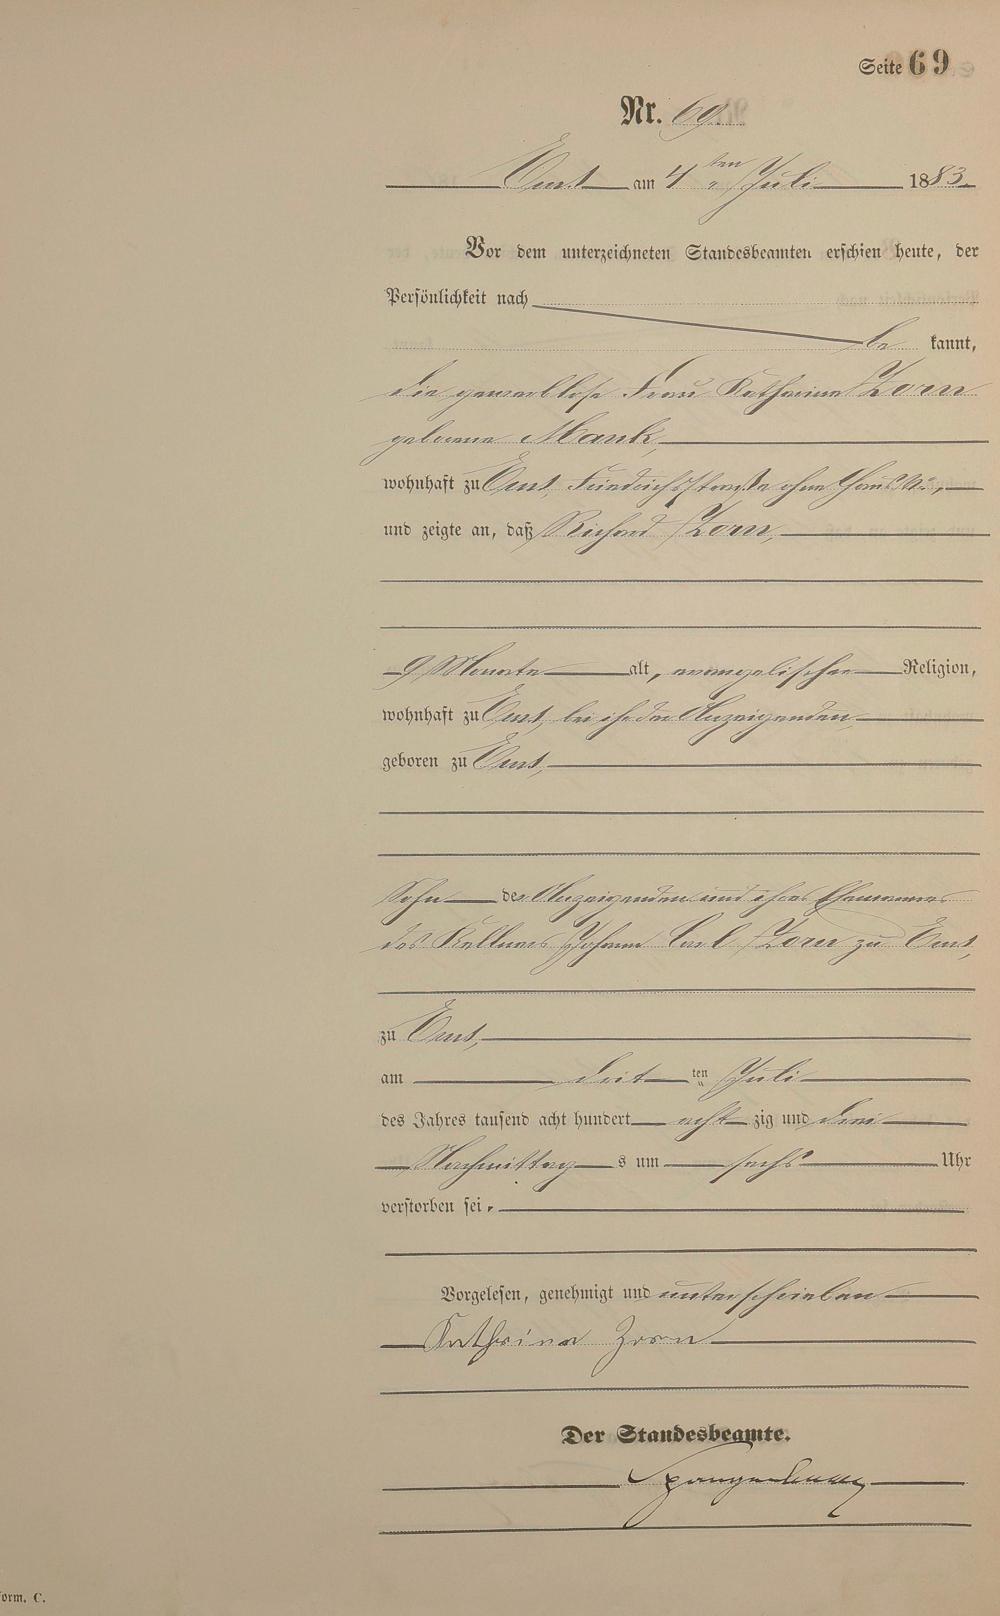 Seite 69
Nr. 69.
Ems am 4ten Juli 1883.
Vor dem unterzeichneten Standesbeamten erschien heute, der
Persönlichkeit nach
be kannt,
die gewerblose Frau Katharina Zorn
geborene Mank,
wohnhaft zu Ems, Friedrichsstraße ohne Haus Nr.,
und zeigte an, daß Richard Zorn,
9 Monate alt, evangelischer Religion,
wohnhaft zu Ems, bei der Anzeigenden,
geboren zu Ems,
Sohn der Anzeigenden und ihres Ehemannes
des Kellners Johann Carl Zorn zu Ems,
zu Ems,
am dritten Juli
des Jahres tausend acht hundert acht zig und drei
Nachmittag s um sechs Uhr
verstorben sei.
Vorgelesen, genehmigt und unterschrieben
Kathrina Zorn
Der Standesbeamte.
Spangenberg
orm. C.